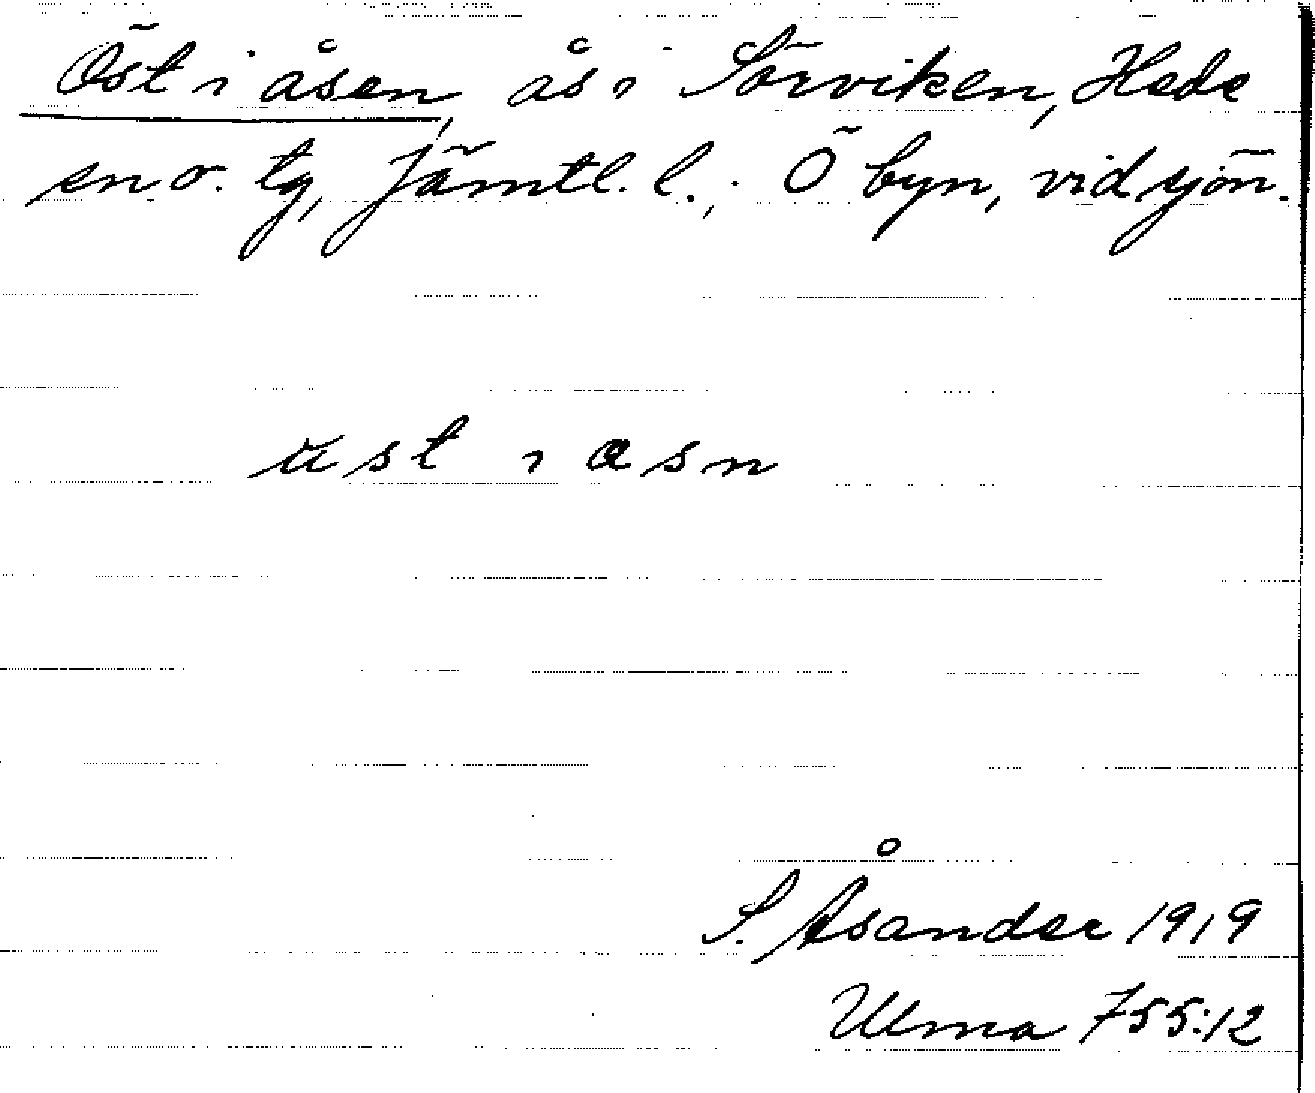 Öst i åsen, ås i Sörviken, Hede
sn o. tg, Jämtl. l., Ö byn, vid sjön.
ust i asn
S. Åsander 1919
Ulma 755:12